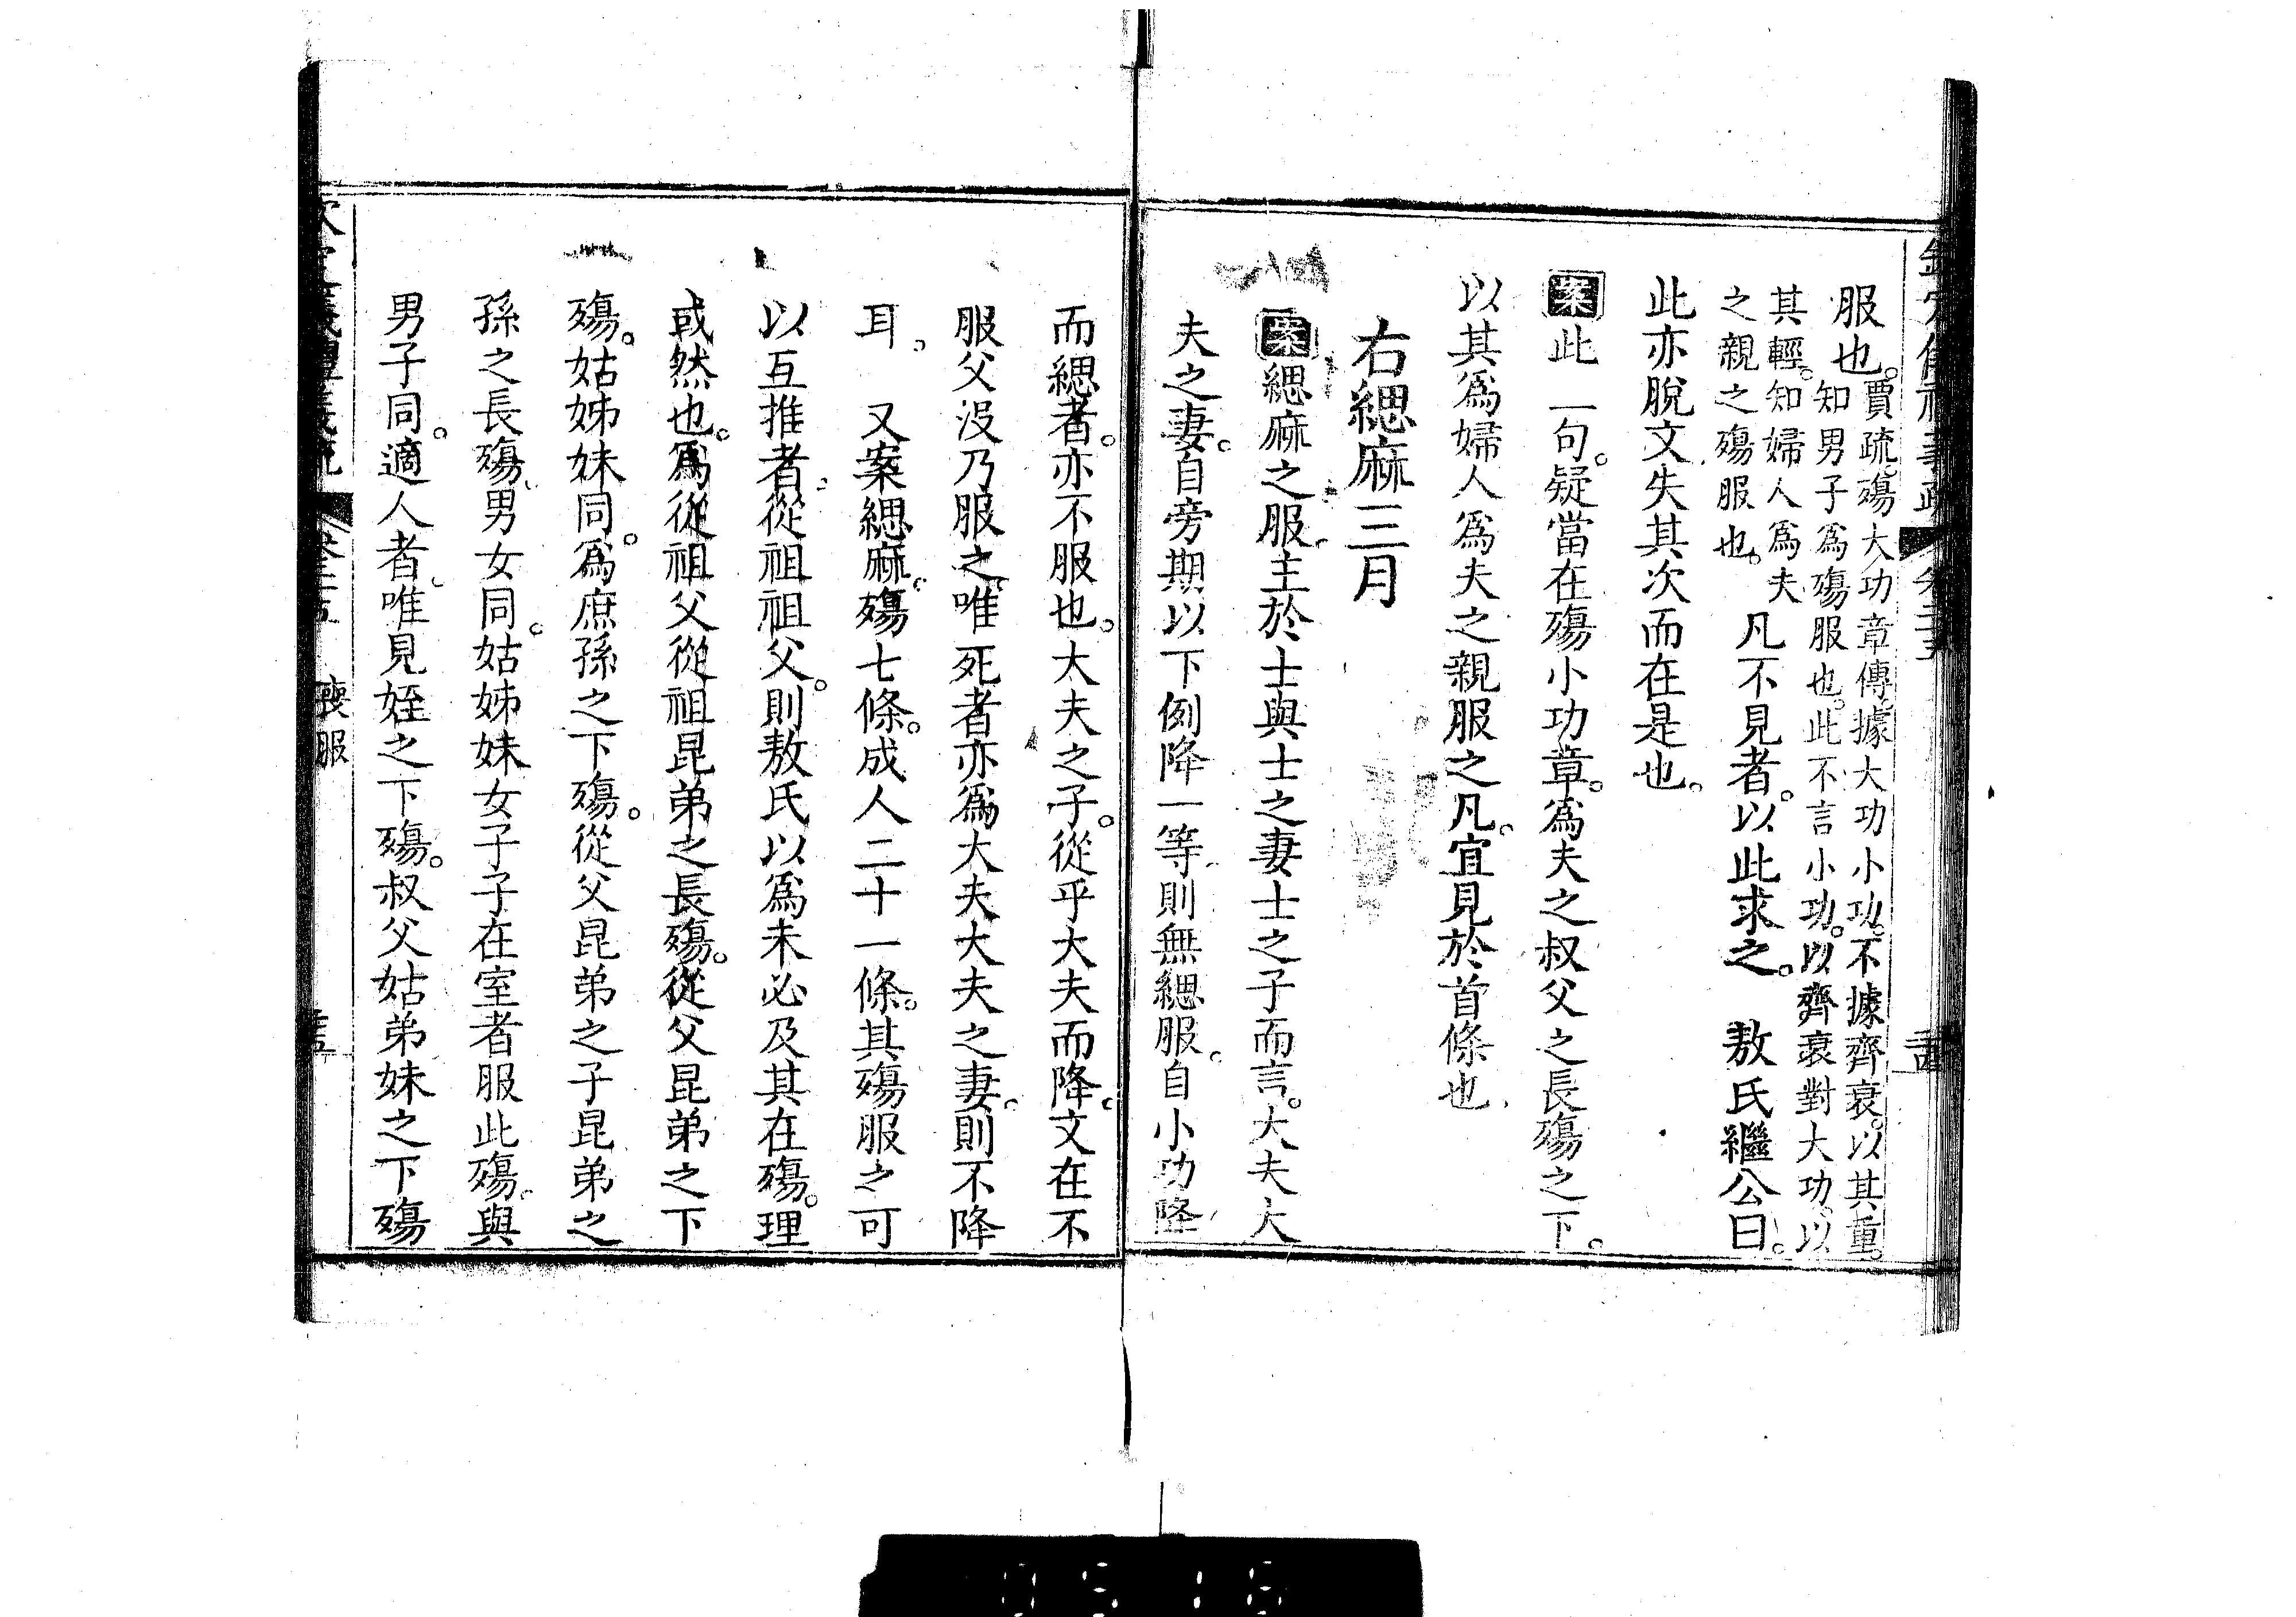 服也。賈疏。殤大功章傳。據大功小功。不據齊衰。以其重。
知男子爲殤服也。此不言小功。以齊衰對大功。以
其輕。知婦人爲夫
之親之殤服也。凡不見者。以此求之。 敖氏繼公曰。
此亦脫文失其次而在是也。
案此一句。疑當在殤小功章。爲夫之叔父之長殤之下。
以其爲婦人爲夫之親服之凡。宜見於首條也
右緦麻三月
案緦麻之服。主於士與士之妻士之子而言。大夫大
夫之妻。自旁期以下例降一等。則無緦服。自小功降
而緦者。亦不服也。大夫之子。從乎大夫而降。文在不
服父沒乃服之。唯死者亦爲大夫大夫之妻。則不降
耳。 又案緦麻。殤七條。成人二十一條。其殤服之可
以互推者。從祖祖父。則敖氏以爲未必及其在殤。理
或然也。爲從祖父從祖昆弟之長殤。從父昆弟之下
殤。姑姊妹同。爲庶孫之下殤。從父昆弟之子昆弟之
孫之長殤。男女同。姑姊妹女子子在室者服此殤。與
男子同。適人者。唯見姪之下殤。叔父姑弟妹之下殤
喪服